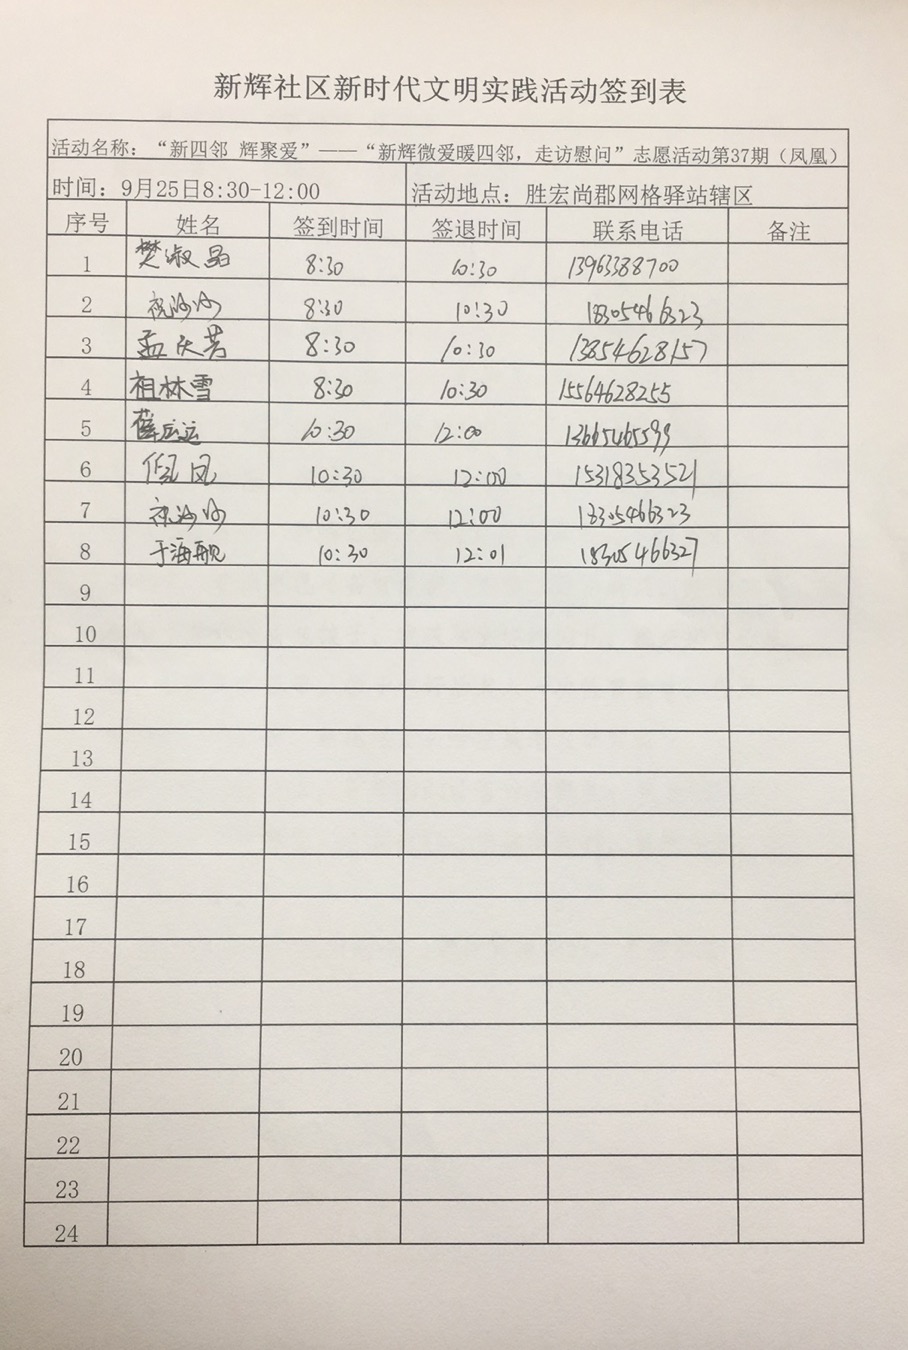 新辉社区新时代文明实践活动签到表
活动名称：“新四邻 辉聚爱”——“新辉微爱暖四邻，走访慰问”志愿活动第37期（凤凰）
时间：9月25日8:30-12:00 活动地点：胜宏尚郡网格驿站辖区
序号 姓名 签到时间 签退时间 联系电话 备注
1 樊淑晶 8:30 10:30 13963388700
2 祝沙沙 8:30 10:30 18305466323
3 孟庆芳 8:30 10:30 13854628157
4 祖林雪 8:30 10:30 15564628255
5 薛后运 10:30 12:00 13665465599
6 凤 10:30 12:00 15318353521
7 祝沙沙 10:30 12:00 18305466323
8 于海舰 10:30 12:01 18305466327
9
10
11
12
13
14
15
16
17
18
19
20
21
22
23
24